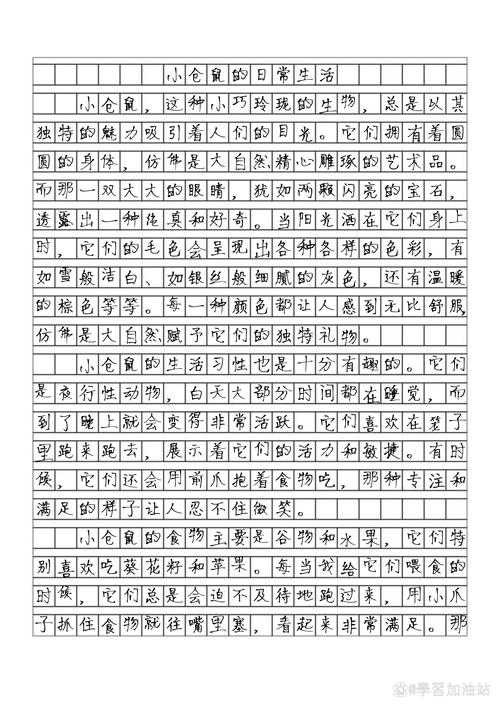 小仓鼠的日常生活
小仓鼠，这种小巧玲珑的生物，总是以其
独特的魅力吸引着人们的目光。它们拥有着圆
圆的身体，仿佛是大自然精心雕琢的艺术品。
而那一双大大的眼睛，犹如两颗闪亮的宝石，
透露出一种纯真和好奇。当阳光洒在它们身上
时，它们的毛色会呈现出各种各样的色彩，有
如雪般洁白、如银丝般细腻的灰色，还有温暖
的棕色等等。每一种颜色都让人感到无比舒服，
仿佛是大自然赋予它们的独特礼物。
小仓鼠的生活习性也是十分有趣的。它们
是夜行性动物，白天大部分时间都在睡觉，而
到了晚上就会变得非常活跃。它们喜欢在笼子
里跑来跑去，展示着它们的活力和敏捷。有时
候，它们还会用前爪抱着食物吃，那种专注和
满足的样子让人忍不住微笑。
小仓鼠的食物主要是谷物和水果，它们特
别喜欢吃葵花籽和苹果。每当我给它们喂食的
时候，它们总是会迫不及待地跑过来，用小爪
子抓住食物就往嘴里塞，看起来非常满足。那
@學習加油站